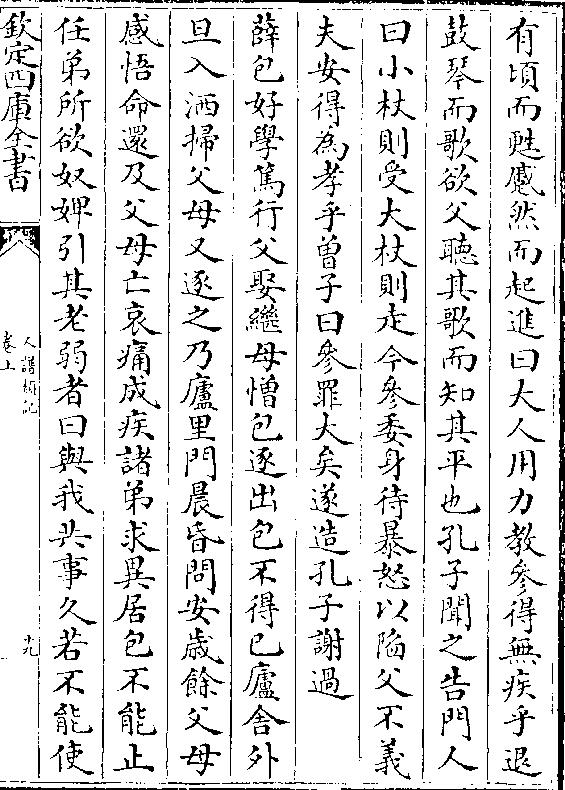 有頃而甦蹙然而起進曰大人用力教參得無疾乎退
鼓琴而歌欲父聽其歌而知其平也孔子聞之告門人
曰小杖則受大杖則走今參委身待暴怒以陷父不義
夫安得為孝乎曽子曰參罪大矣遂造孔子謝過
薛包好學篤行父娶繼母憎包逐出包不得已廬舎外
旦入洒掃父母又逐之乃廬里門晨昏問安歳餘父母
感悟命還及父母亡哀痛成疾諸弟求異居包不能止
任弟所欲奴婢引其老弱者曰與我共事久若不能使
欽定四庫全書
人譜類記
卷上
十九